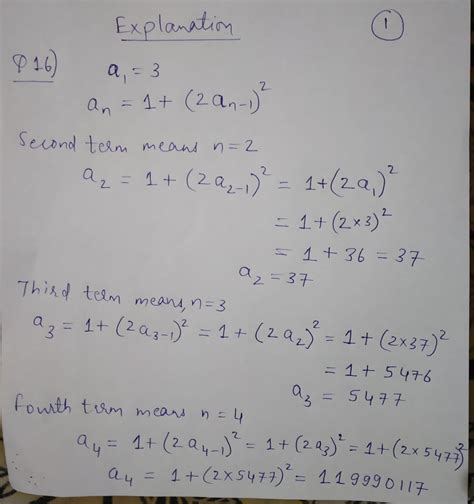 Explanation
1
Q16) a₁ = 3
aₙ = 1 + (2aₙ₋₁)²
Second term means n = 2
a₂ = 1 + (2a₂₋₁)² = 1 + (2a₁)²
= 1 + (2×3)²
= 1 + 36 = 37
a₂ = 37
Third term means, n = 3
a₃ = 1 + (2a₃₋₁)² = 1 + (2a₂)² = 1 + (2×37)²
= 1 + 5476
a₃ = 5477
Fourth term means n = 4
a₄ = 1 + (2a₄₋₁)² = 1 + (2a₃)² = 1 + (2×5477)²
a₄ = 1 + (2×5477)² = 119990117